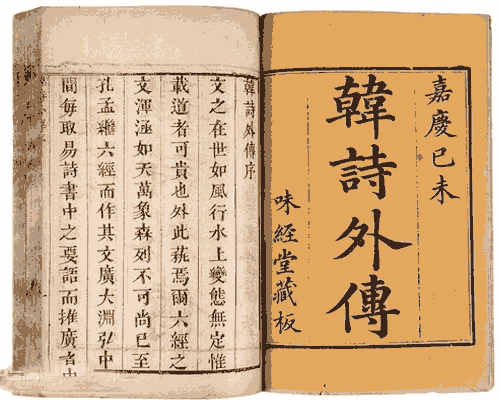 嘉慶己未
韓詩外傳
味經堂藏板
韓詩外傳序
文之在世如風行水上變態無定惟
載道者可貴也外此蓺焉爾六經之
文渾涵如天萬象森列不可尚已至
孔孟繼六經而作其文廣大淵弘中
間每取易詩書中之要語而推廣者中